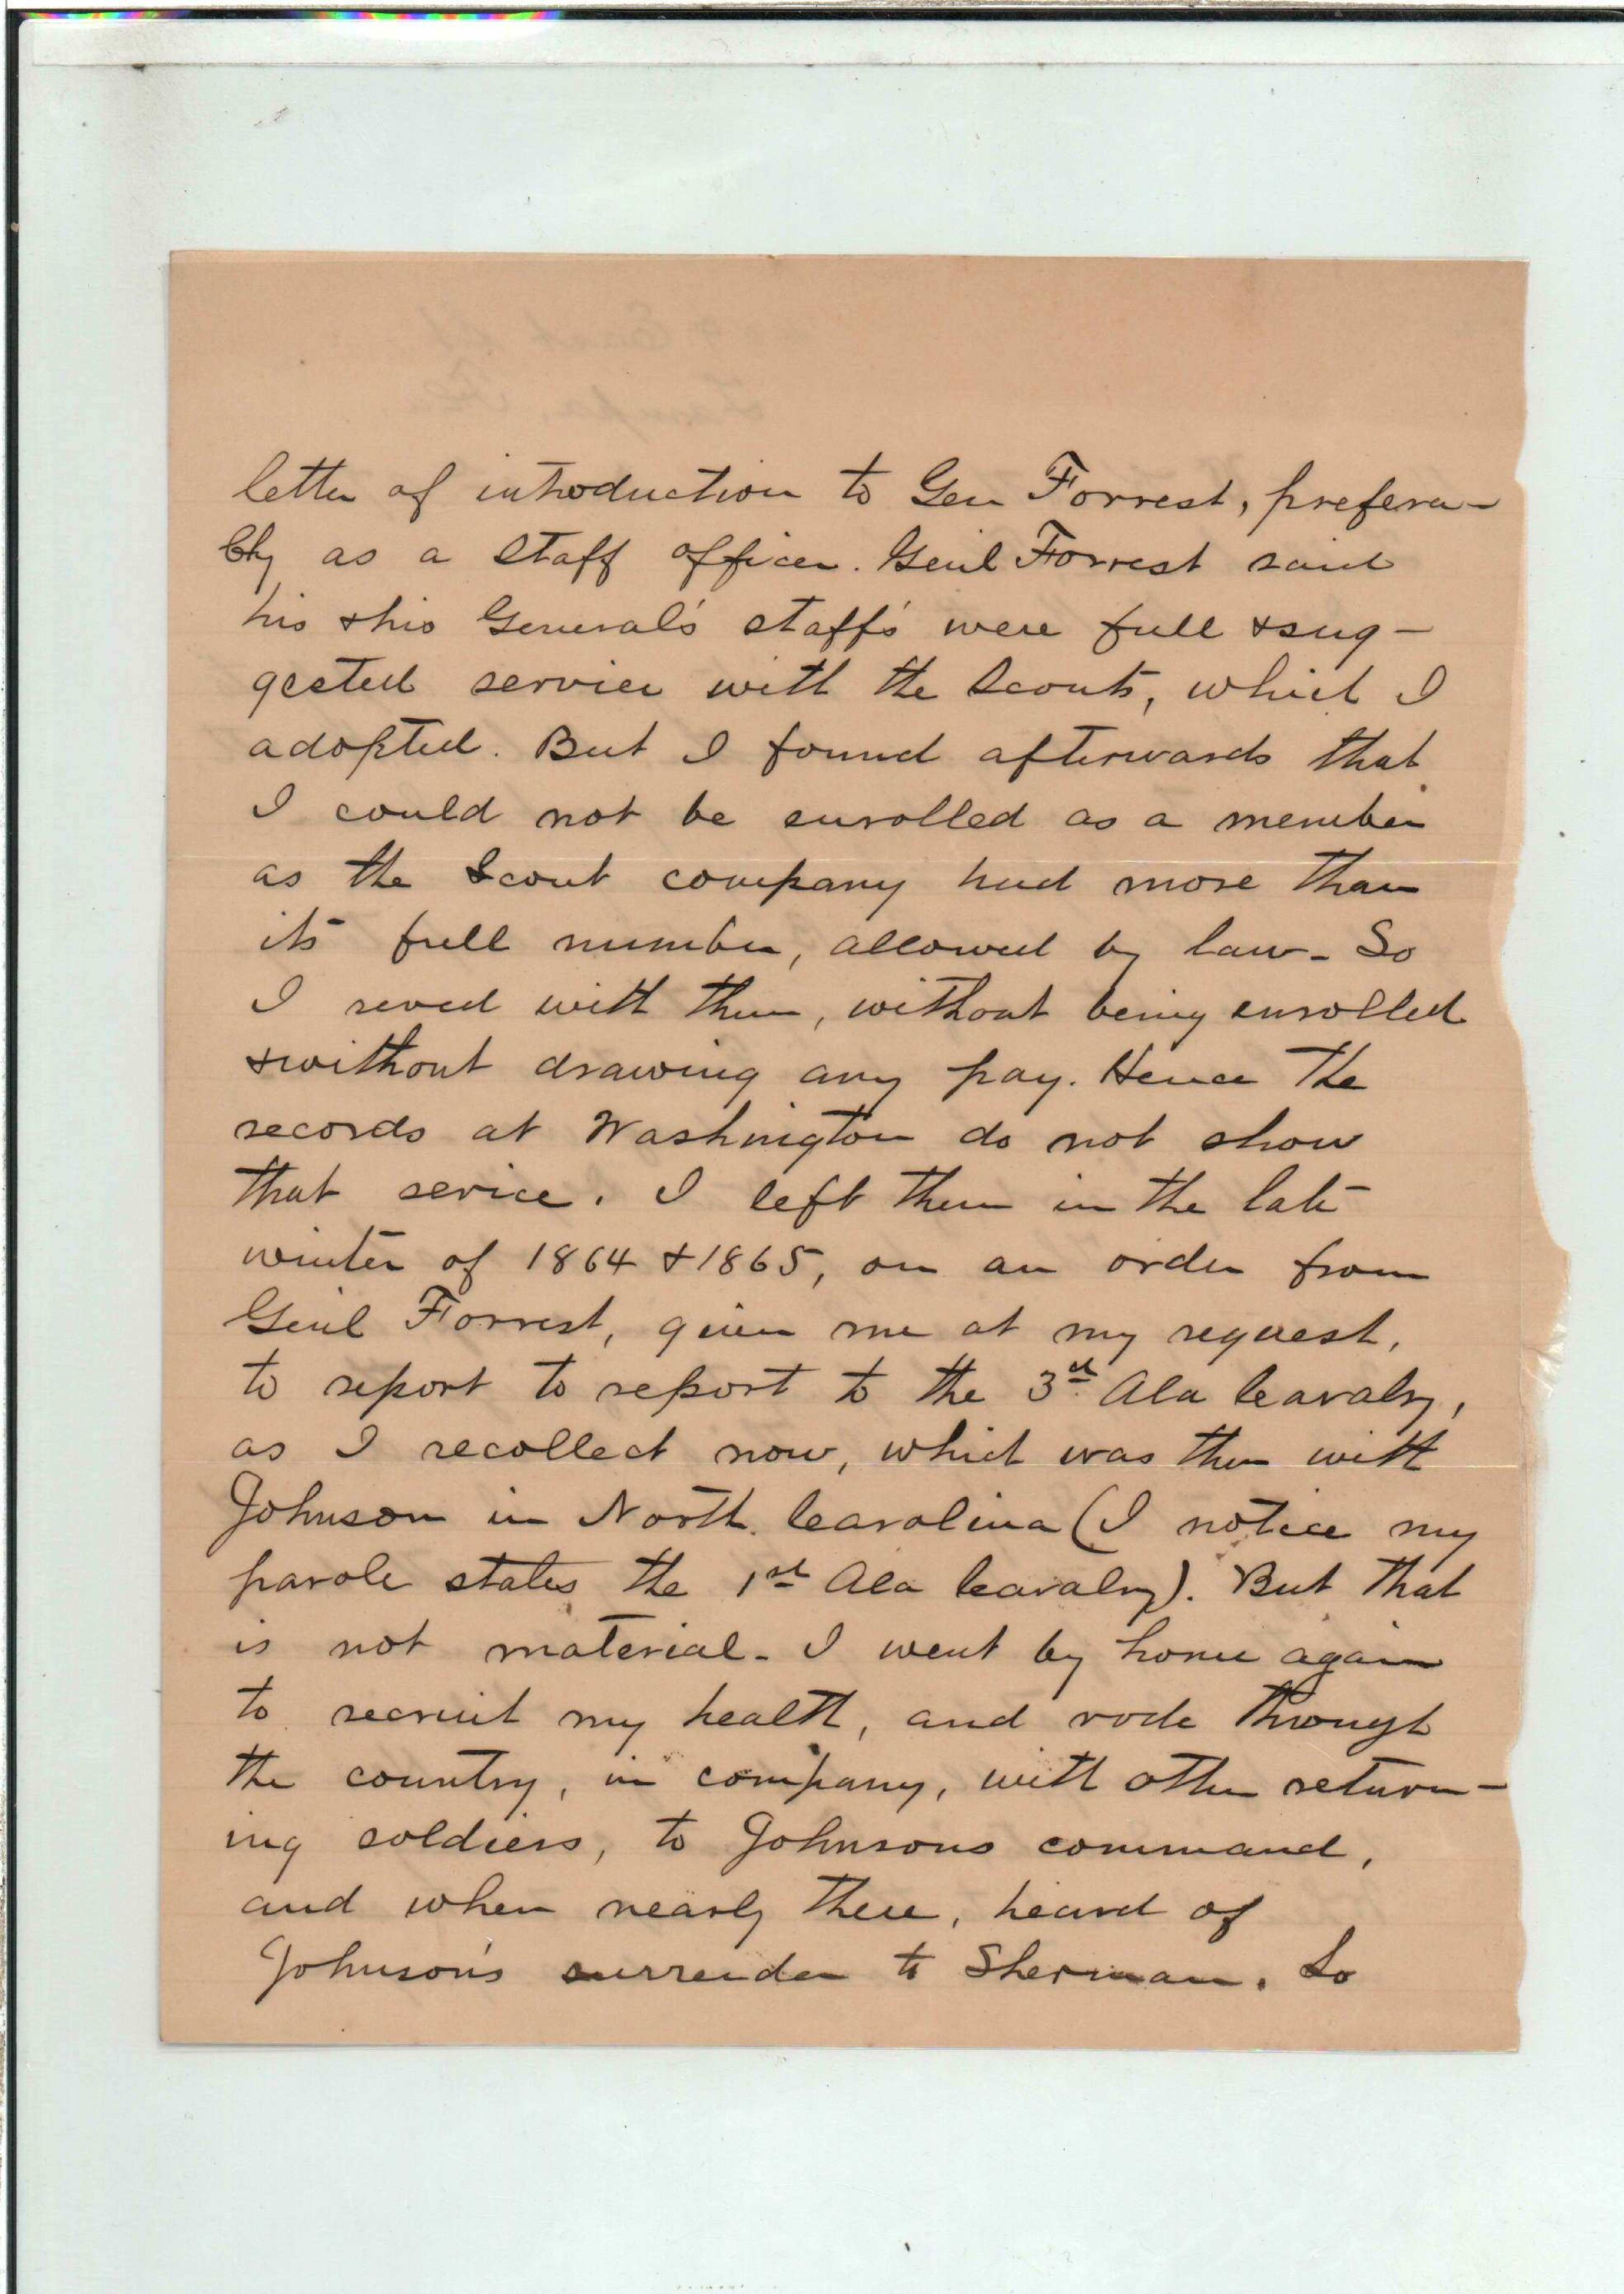 letter of introduction to Gen Forrest, prefera-
bly as a staff officer. Genl Forrest said
his & his General's staff's were full & sug-
gested service with the Scouts, which I
adopted. But I found afterwards that
I could not be enrolled as a member
as the Scout company had more than
its full number, allowed by law. So
I seved with them, without being enrolled
& without drawing any pay. Hence the
records at Washington do not show
that serice. I left them in the late
winter of 1864 & 1865, on an order from
Genl Forrest, given me at my request,
to report to report to the 3rd Ala Cavalry,
as I recollect now, which was then with
Johnson in North Carolina (I notice my
parole states the 1st Ala Cavalry). But that
is not material. I went by home again
to recruit my health, and rode through
the country, in company, with other return-
ing soldiers, to Johnsons command,
and when nearly there, heard of
Johnson's surrender to Sherman. So